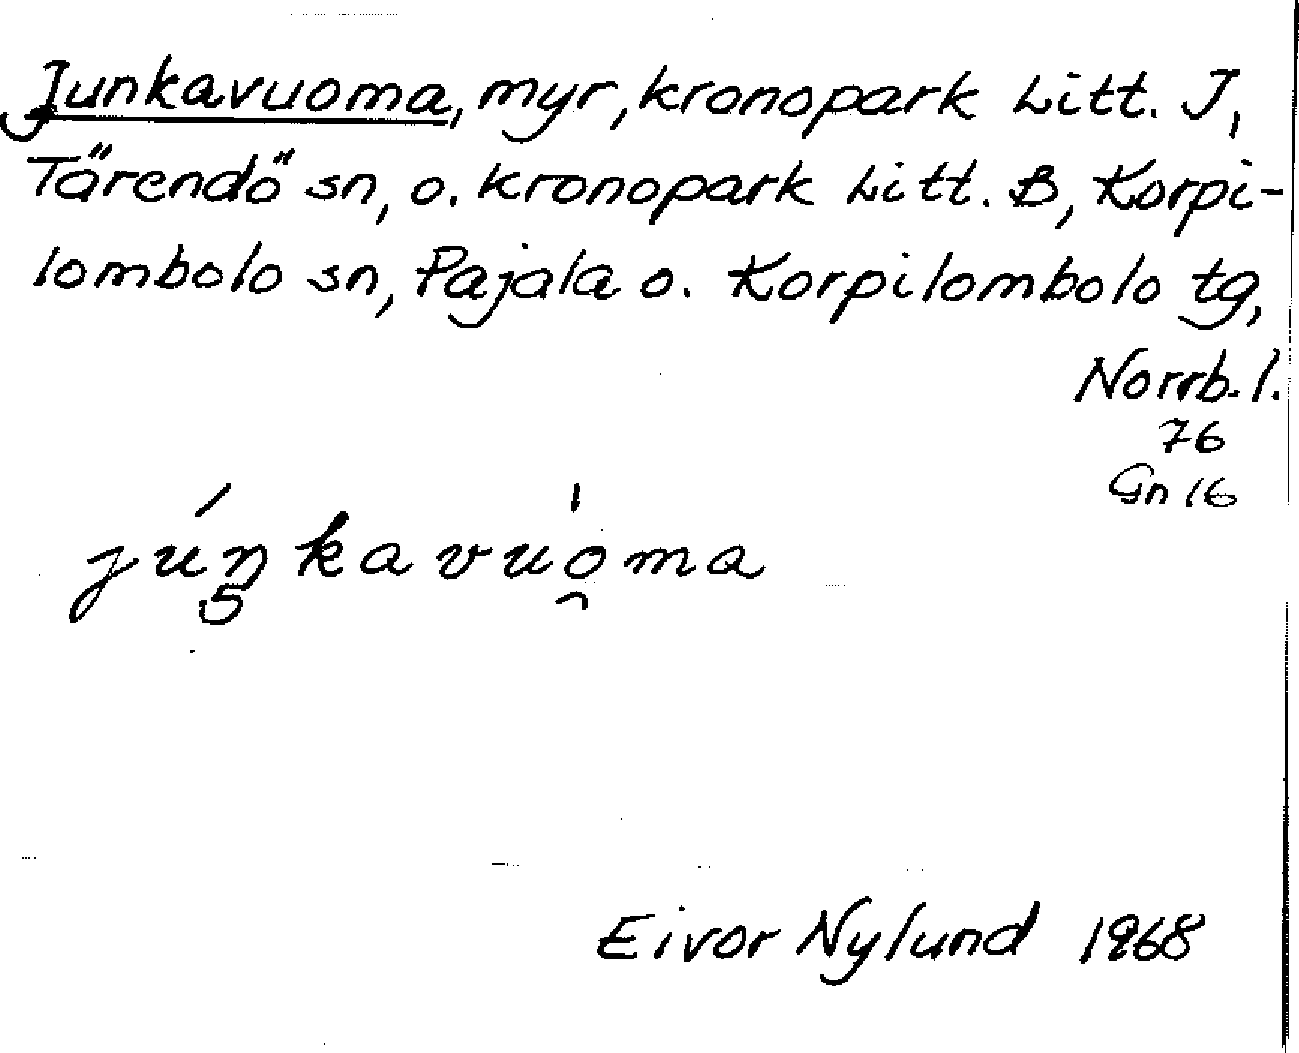 Junkavuoma, myr, kronopark Litt. J,
Tärendö sn, o. kronopark Litt. B, Korpi-
lombolo sn, Pajala o. Korpilombolo tg,
Norrb. l.
76
Gn 16
júŋkavu̯óma
Eivor Nylund 1968